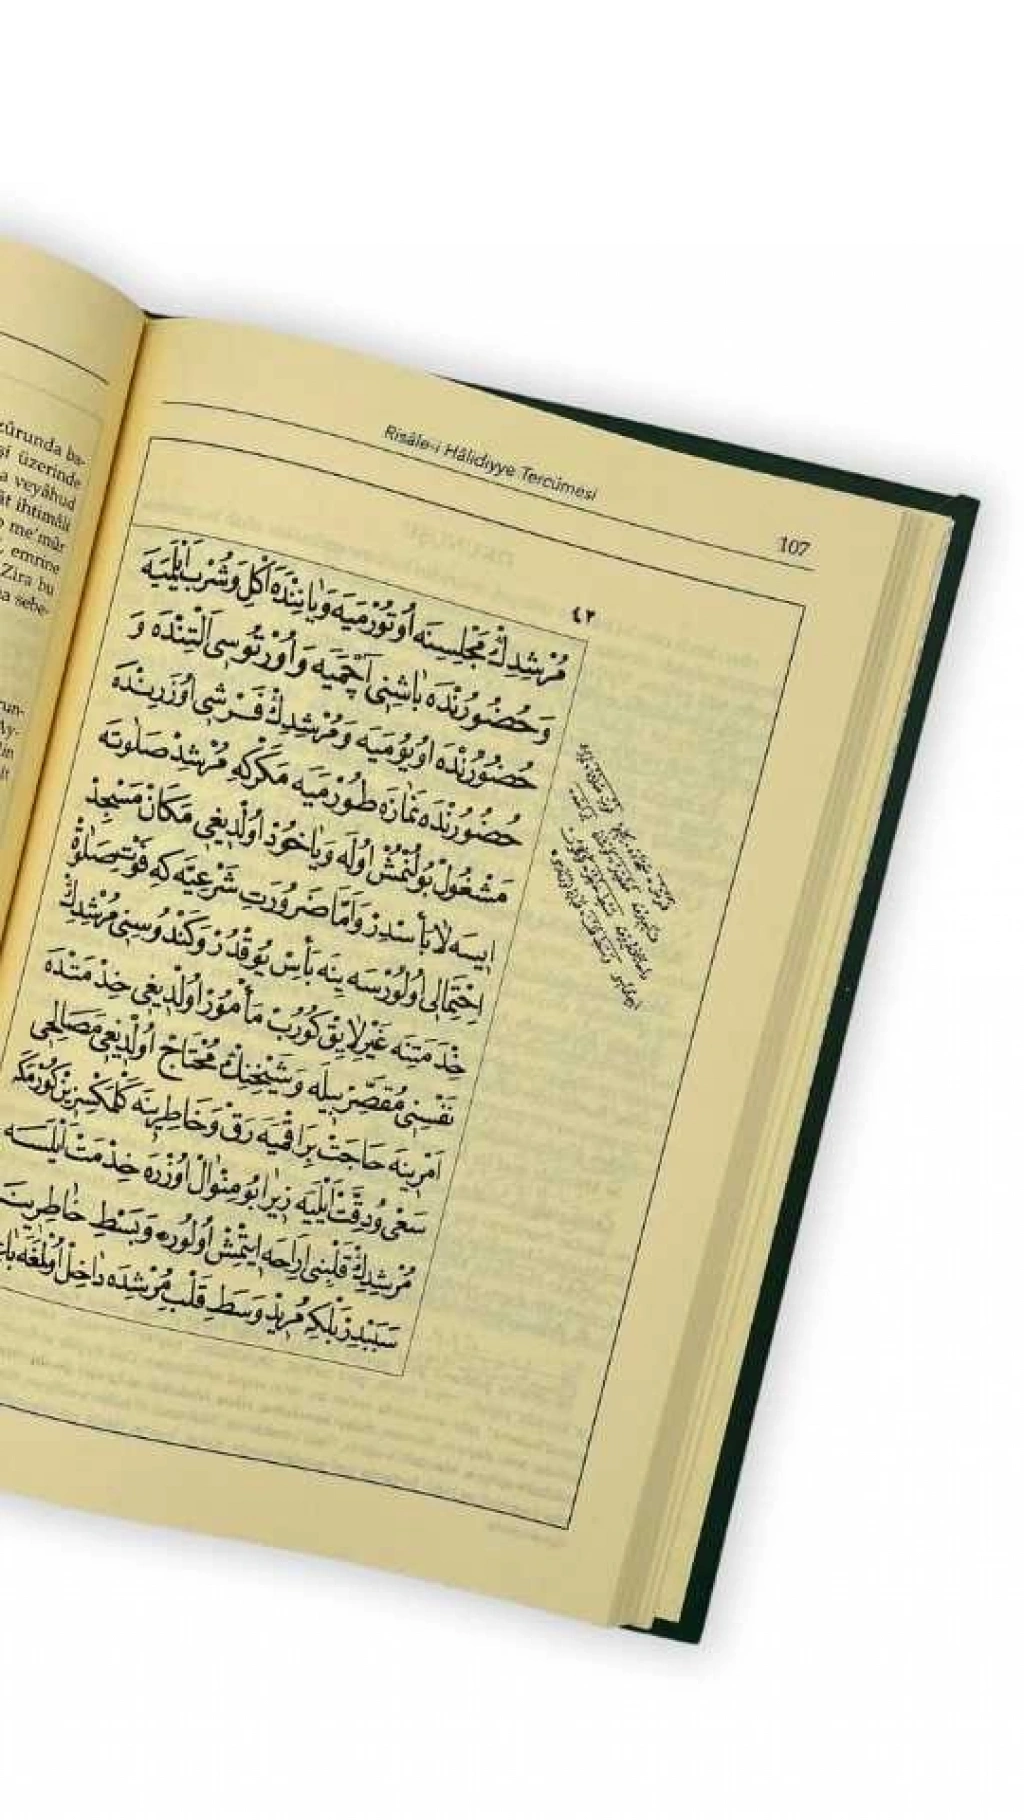 zûrunda ba-
şi üzerinde
a veyâhud
ât ihtimâli
o me'mûr
, emrine
Zira bu
a sebe-
run-
Ay-
Risâle-i Hâlidiyye Tercümesi
107
٤٢
مُرْشِدِكْ مَجْلِسِنَه اُوتُورْمَيَه وَيَانِنْدَه اَكْلُ وَشُرْبْ اَيْلَمَيَه
وَحُضُورُنْدَه بَاشِنِى اَچْمَيَه وَاُورْتُوسِى اَلْتِنْدَه وَ
حُضُورُنْدَه اُويُومَيَه وَمُرْشِدِكْ فَرْشِى اُوزَرِنْدَه
حُضُورُنْدَه نَمَازَه طُورْمَيَه مَكَرْكِه مُرْشِدْ صَلَوتَه
مَشْغُولْ بُولُنْمُشْ اُولَه وَيَاخُودْ اُولْدِيغِى مَكَانْ مَسْجِدْ
اِيسَه لَابَأْسَدِرْ وَاَمَّا ضَرُورَتِ شَرْعِيَّه كِه فَوْتِ صَلَوةْ
اِحْتِمَالِى اُولُورْسَه يِنَه بَأْسْ يُوقْدُرْ وَكَنْدُوسِنِى مُرْشِدِكْ
خِدْمَتِنَه غَيْرِ لَايِقْ كُورُبْ مَأْمُورْ اُولْدِيغِى خِدْمَتْدَه
نَفْسِنِى مُقَصِّرْ بِيلَه وَشَيْخِنِكْ مُحْتَاجْ اُولْدِيغِى مَصَالِحِى
اَمْرِينَه حَاجَتْ بِرَاقْمَيَه رَقْ وَخَاطِرِينَه كَلْمَكْسِزِينْ كُورْمَكَه
سَعْى وُدِقَّتْ اَيْلَيَه زِيرَا بُو مِنْوَالْ اُوزْرَه خِدْمَتْ اَيْلَسَه
مُرْشِدِكْ قَلْبِنِى اِرَاحَه اِيتْمِشْ اُولُورْ وَبَسْطِ خَاطِرِينَه
سَبَبْدِرْ بَلْكِه مُرِيدْ وَسَطِ قَلْبِ مُرْشِدَه دَاخِلْ اُولْمَغَه